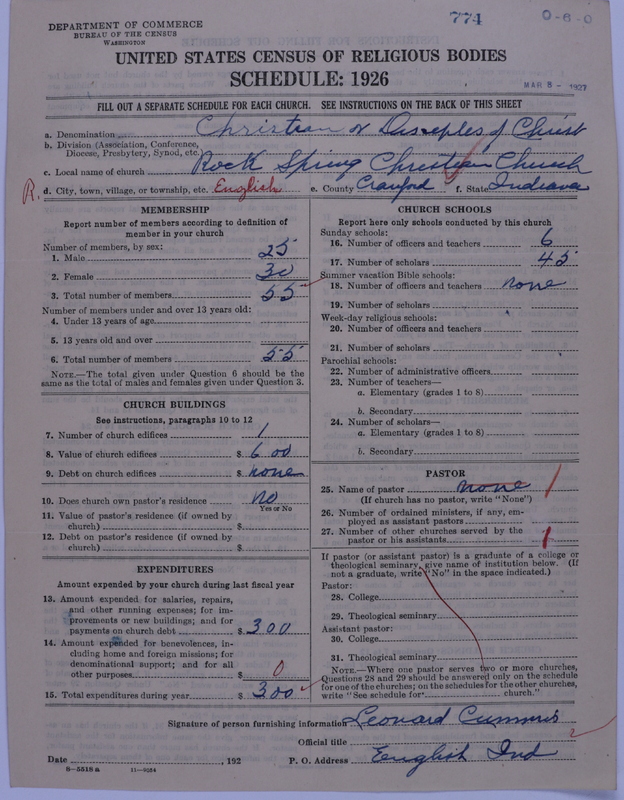 DEPARTMENT OF COMMERCE
BUREAU OF THE CENSUS
WASHINGTON
774
0-6-0
UNITED STATES CENSUS OF RELIGIOUS BODIES
SCHEDULE: 1926
MAR 8 - 1927
FILL OUT A SEPARATE SCHEDULE FOR EACH CHURCH. SEE INSTRUCTIONS ON THE BACK OF THIS SHEET
a. Denomination Christian or Disciples of Christ
b. Division (Association, Conference, Diocese, Presbytery, Synod, etc.)
c. Local name of church Rock Spring Christian Church
R. d. City, town, village, or township, etc. English e. County Crawford f. State Indiana
MEMBERSHIP
Report number of members according to definition of
member in your church
Number of members, by sex:
1. Male 25
2. Female 30
3. Total number of members 55
Number of members under and over 13 years old:
4. Under 13 years of age
5. 13 years old and over
6. Total number of members 55
NOTE.—The total given under Question 6 should be the
same as the total of males and females given under Question 3.
CHURCH BUILDINGS
See instructions, paragraphs 10 to 12
7. Number of church edifices 1
8. Value of church edifices $ 600
9. Debt on church edifices $ none
10. Does church own pastor's residence No
Yes or No
11. Value of pastor's residence (if owned by
church) $
12. Debt on pastor's residence (if owned by
church) $
EXPENDITURES
Amount expended by your church during last fiscal year
13. Amount expended for salaries, repairs,
and other running expenses; for im-
provements or new buildings; and for
payments on church debt $ 300
14. Amount expended for benevolences, in-
cluding home and foreign missions; for
denominational support; and for all
other purposes $ 0
15. Total expenditures during year $ 300
CHURCH SCHOOLS
Report here only schools conducted by this church
Sunday schools:
16. Number of officers and teachers 6
17. Number of scholars 45
Summer vacation Bible schools:
18. Number of officers and teachers none
19. Number of scholars
Week-day religious schools:
20. Number of officers and teachers
21. Number of scholars
Parochial schools:
22. Number of administrative officers
23. Number of teachers—
a. Elementary (grades 1 to 8)
b. Secondary
24. Number of scholars—
a. Elementary (grades 1 to 8)
b. Secondary
PASTOR
25. Name of pastor none 1
(If church has no pastor, write "None")
26. Number of ordained ministers, if any, em-
ployed as assistant pastors
27. Number of other churches served by the
pastor or his assistants 1
If pastor (or assistant pastor) is a graduate of a college or
theological seminary, give name of institution below. (If
not a graduate, write "No" in the space indicated.)
Pastor:
28. College
29. Theological seminary
Assistant pastor:
30. College
31. Theological seminary
NOTE.—Where one pastor serves two or more churches,
Questions 28 and 29 should be answered only on the schedule
for one of the churches; on the schedules for the other churches,
write "See schedule for church."
Signature of person furnishing information Leonard Cummins
Official title
Date , 192 P. O. Address English Ind
8—5518 a 11—9064